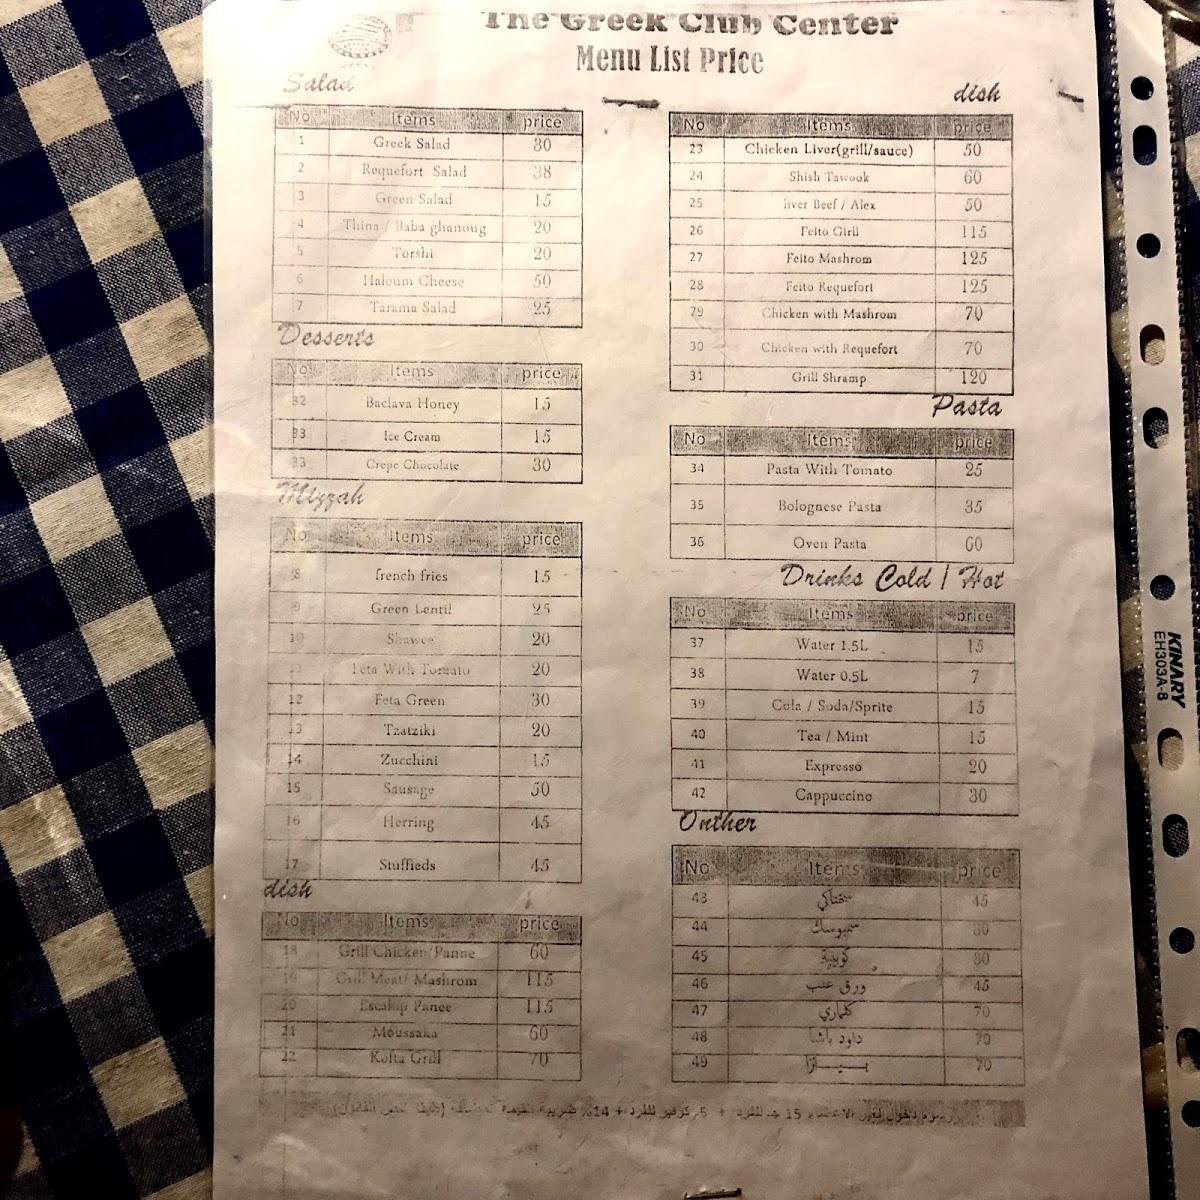 The Greek Club Center
Menu List Price
Salad
No Items price
1 Greek Salad 30
2 Requefort Salad 38
3 Green Salad 15
4 Thina / Baba ghanoug 20
5 Torshi 20
6 Haloum Cheese 50
7 Tarama Salad 25
Desserts
No Items price
32 Baclava Honey 15
33 Ice Cream 15
33 Crepe Chocolate 30
Mizzah
No Items price
8 french fries 15
9 Green Lentil 25
10 Shawee 20
11 Feta With Tomato 20
12 Feta Green 30
13 Tzatziki 20
14 Zucchini 15
15 Sausage 50
16 Herring 45
17 Stuffieds 45
dish
No Items price
18 Grill Chicken/Panne 60
19 Grill Meat/ Mashrom 115
20 Escalup Panee 115
21 Moussaka 60
22 Kofta Grill 70
dish
No Items price
23 Chicken Liver(grill/sauce) 50
24 Shish Tawook 60
25 liver Beef / Alex 50
26 Feito Girll 115
27 Feito Mashrom 125
28 Feito Requefort 125
29 Chicken with Mashrom 70
30 Chicken with Requefort 70
31 Grill Shramp 120
Pasta
No Items price
34 Pasta With Tomato 25
35 Bolognese Pasta 35
36 Oven Pasta 60
Drinks Cold / Hot
No Items price
37 Water 1.5L 15
38 Water 0.5L 7
39 Cola / Soda/Sprite 15
40 Tea / Mint 15
41 Expresso 20
42 Cappuccino 30
Onther
No Items price
43 سختاكي 45
44 سمبوسك 30
45 كوبيبة 30
46 ورق عنب 45
47 كلماري 70
48 داود باشا 70
49 بيـــتزا 70
رسوم دخول لغير الاعضاء 15 جـ للفرد + 5 كوفير للفرد + 14% ضريبة القيمة المضافة
KINARY
EH303A-8